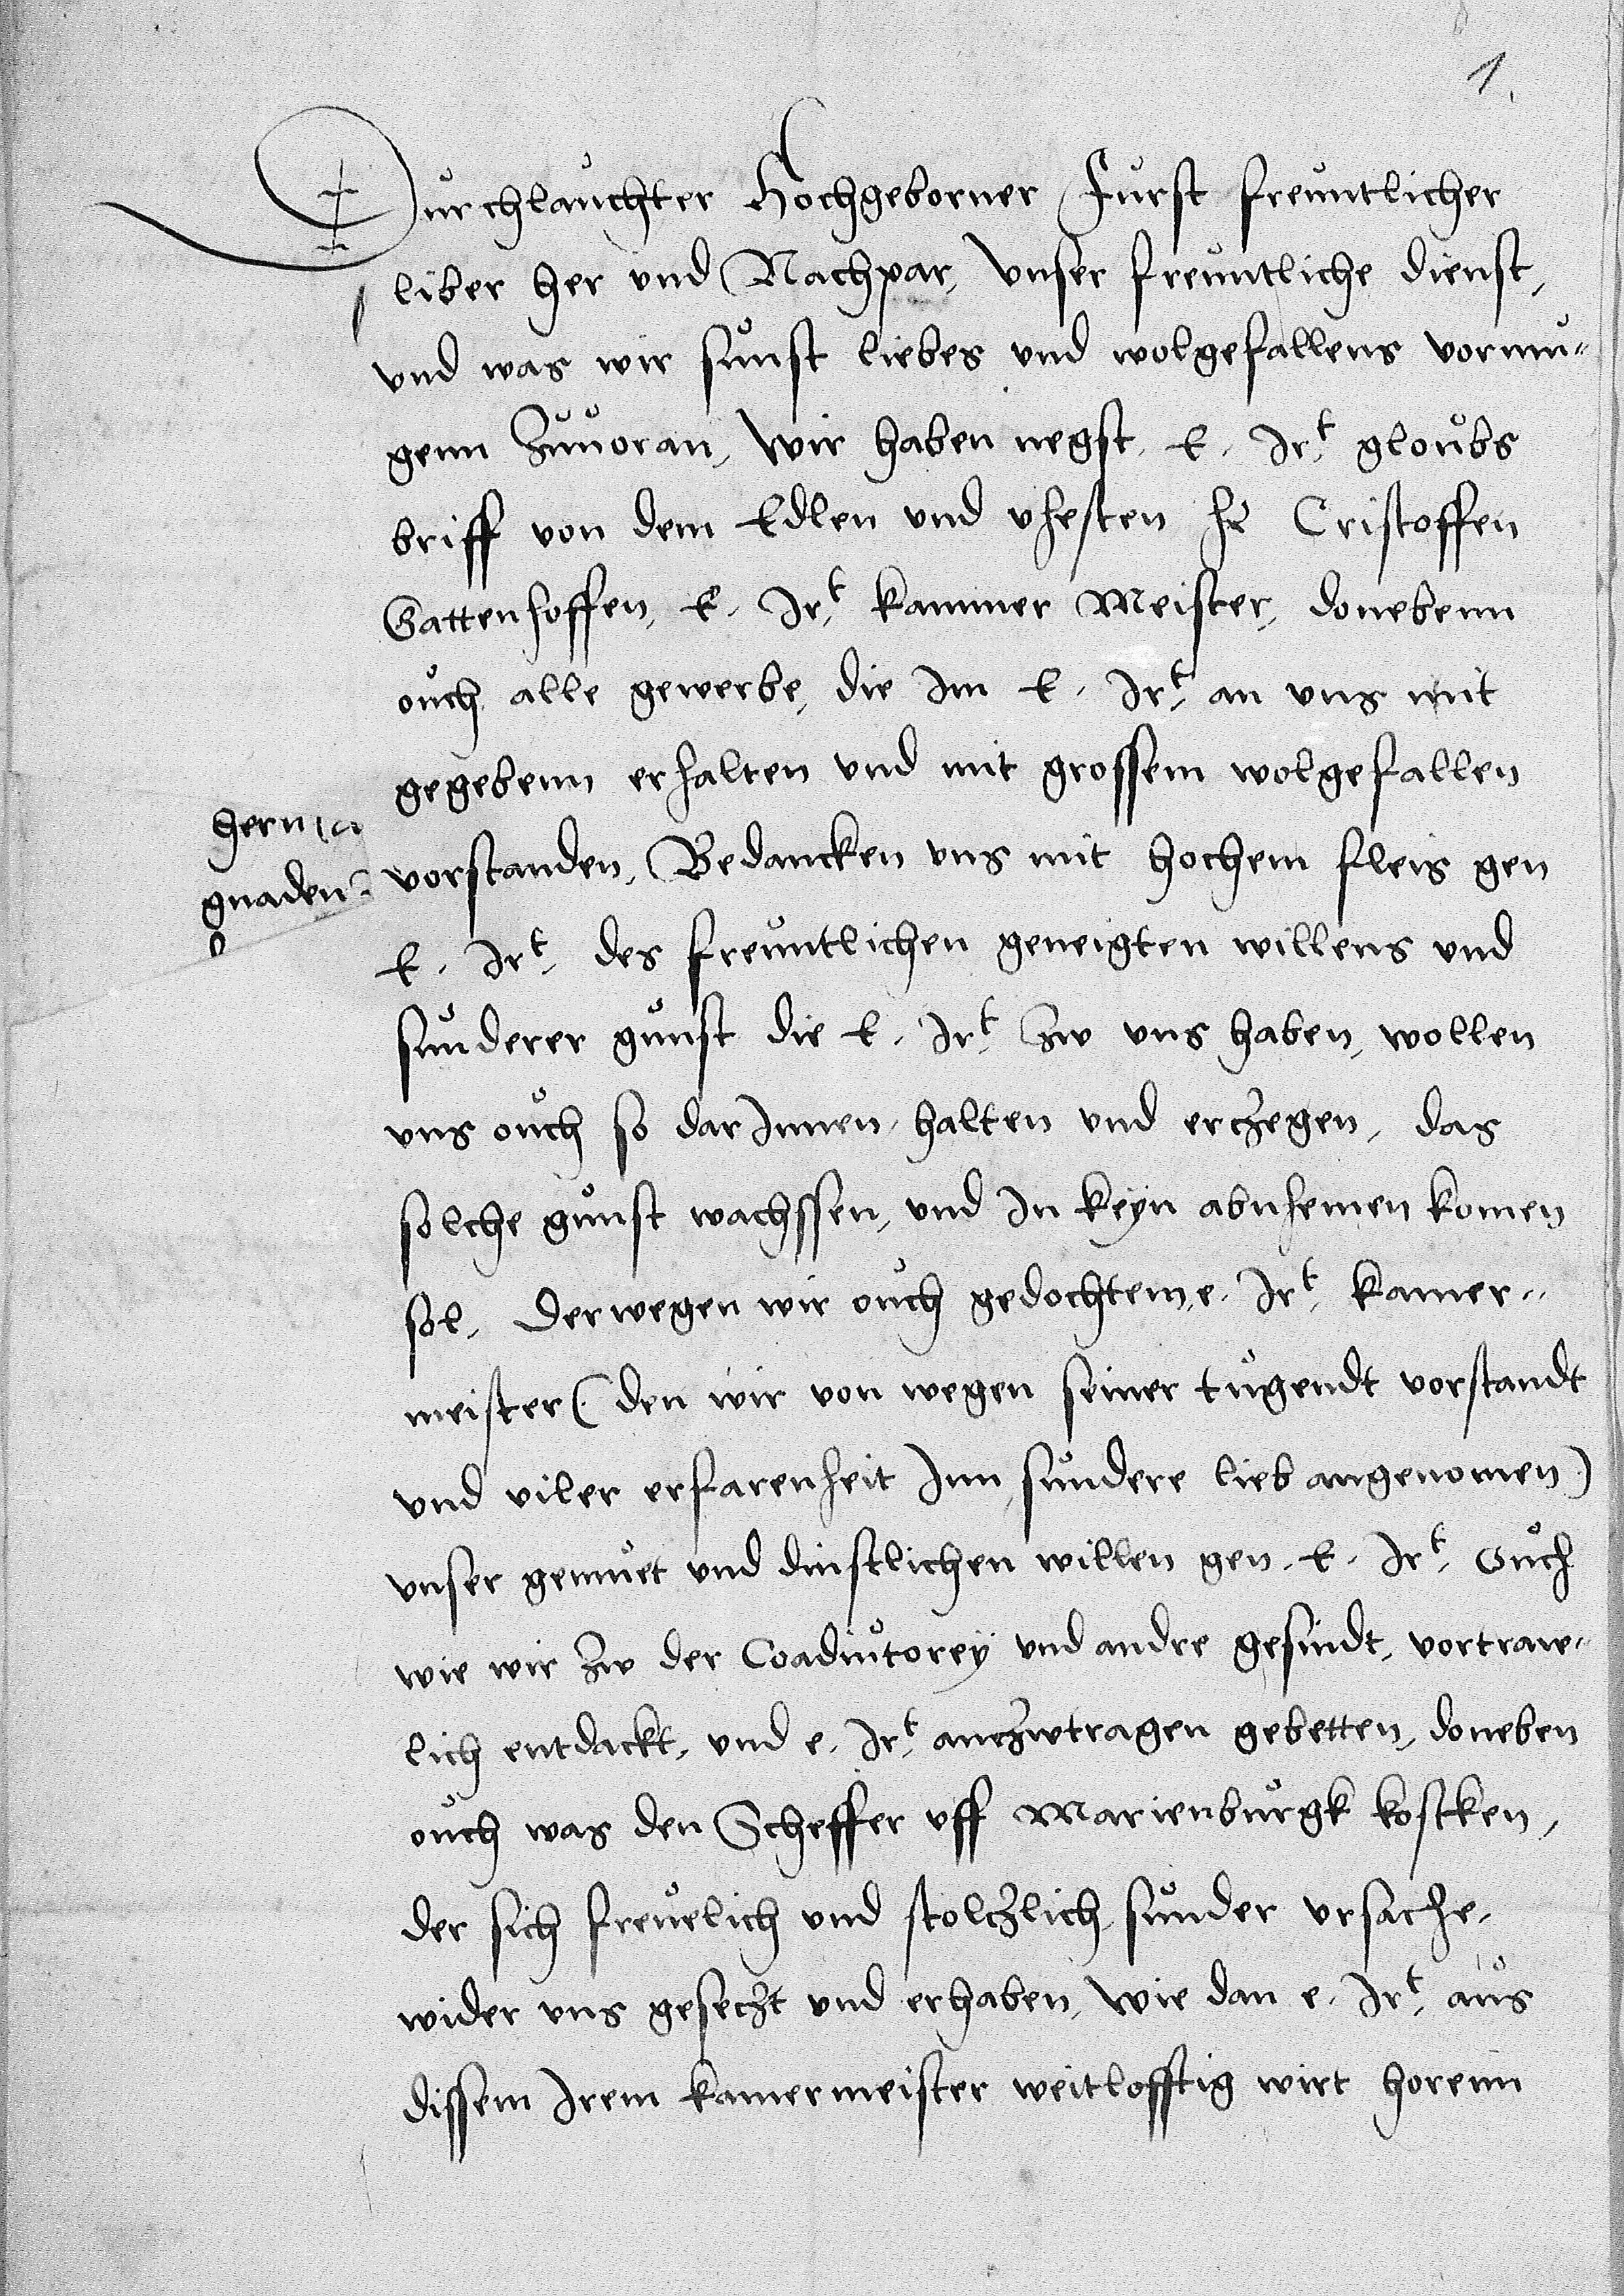 1
Durchlauchter Hochgeborner Furst freuntlicher
liber her vnd Nachpar, vnser freuntliche dienst,
vnd was wir sunst liebes vnd wolgefallens vormu-
genn zuuoran, Wir haben negst E. Irt gloubs
briff von dem Edlen vnd vhesten hr Cristoffen
Gattenhoffen, E. Irt kammer Meister, donebenn
ouch alle gewerbe, die Im E. Irt an vns mit
gegebenn erhalten vnd mit grossem wolgefallen
vorstanden, Bedancken vns mit hochem fleis gen
E. Irt des freuntlichen geneigten willens vnd
sunderer gunst die E. Irt zw vns haben, wollen
vns ouch so dar Innen halten vnd erczegen, das
solche gunst wachssen, vnd In keyn abnhemen komen
sol, derwegen wir ouch gedochtem, e. Irt kamer-
meister (den wir von wegen seiner tugendt vorstandt
vnd viler erfarenheit Inn sundere lieb angenomen)
vnser gemuet vnd dinstlichen willen gen E. Irt Ouch
wie wir zw der Coadiutorey vnd andre gesindt, vortraw-
lich entdackt, vnd e. Irt anczwtragen gebetten, doneben
ouch was den Scheffer vff Marienburgk kostken,
der sich freuelich vnd stolczlich sunder vrsache,
wider vns geseczt vnd erhaben, wie dan e. Irt aus
dissem Irem kamermeister weitlofftig wirt horenn
gnaden